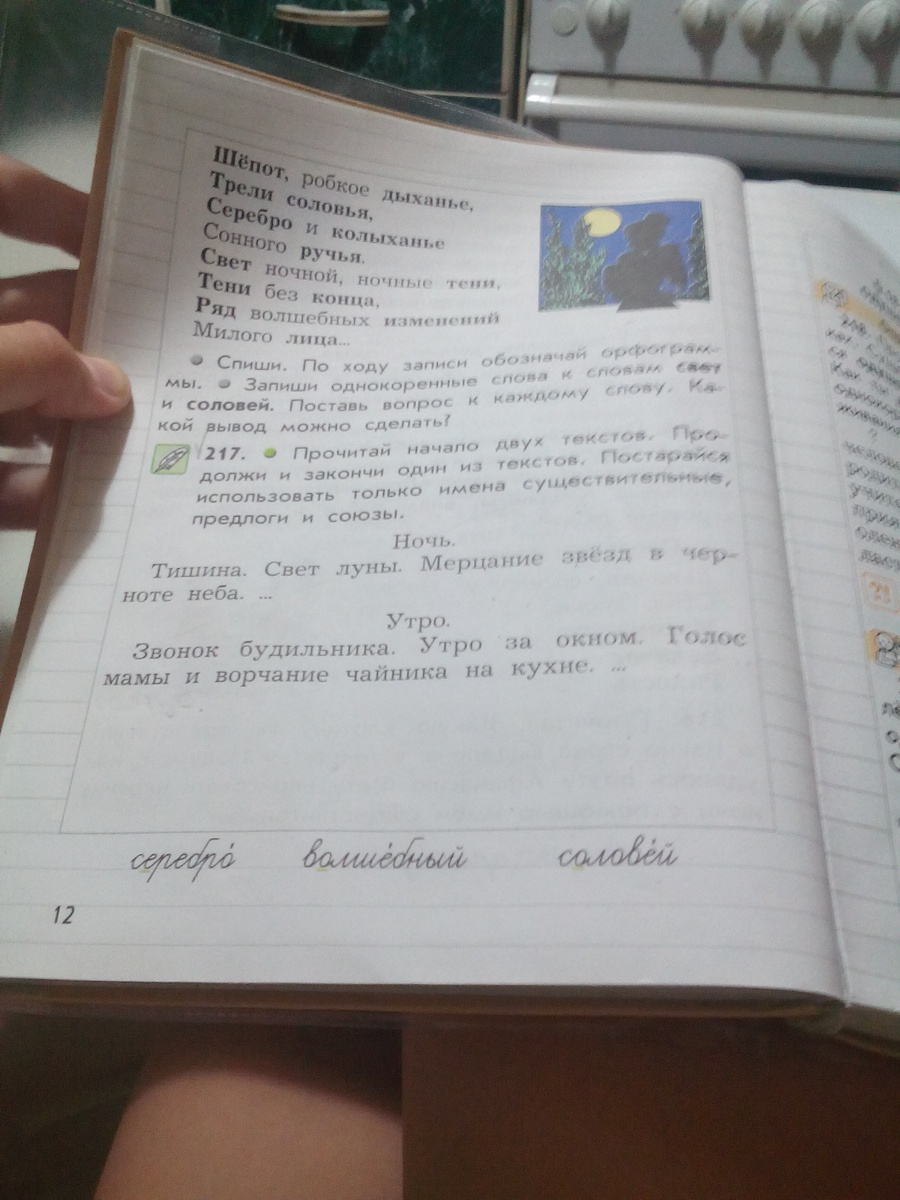 Шёпот, робкое дыханье,
Трели соловья,
Серебро и колыханье
Сонного ручья.
Свет ночной, ночные тени,
Тени без конца,
Ряд волшебных изменений
Милого лица...
• Спиши. По ходу записи обозначай орфограм-
мы. • Запиши однокоренные слова к словам свет
и соловей. Поставь вопрос к каждому слову. Ка-
кой вывод можно сделать?
217. • Прочитай начало двух текстов. Про-
должи и закончи один из текстов. Постарайся
использовать только имена существительные,
предлоги и союзы.
Ночь.
Тишина. Свет луны. Мерцание звёзд в чер-
ноте неба. ...
Утро.
Звонок будильника. Утро за окном. Голос
мамы и ворчание чайника на кухне. ...
серебро́ волше́бный солове́й
12